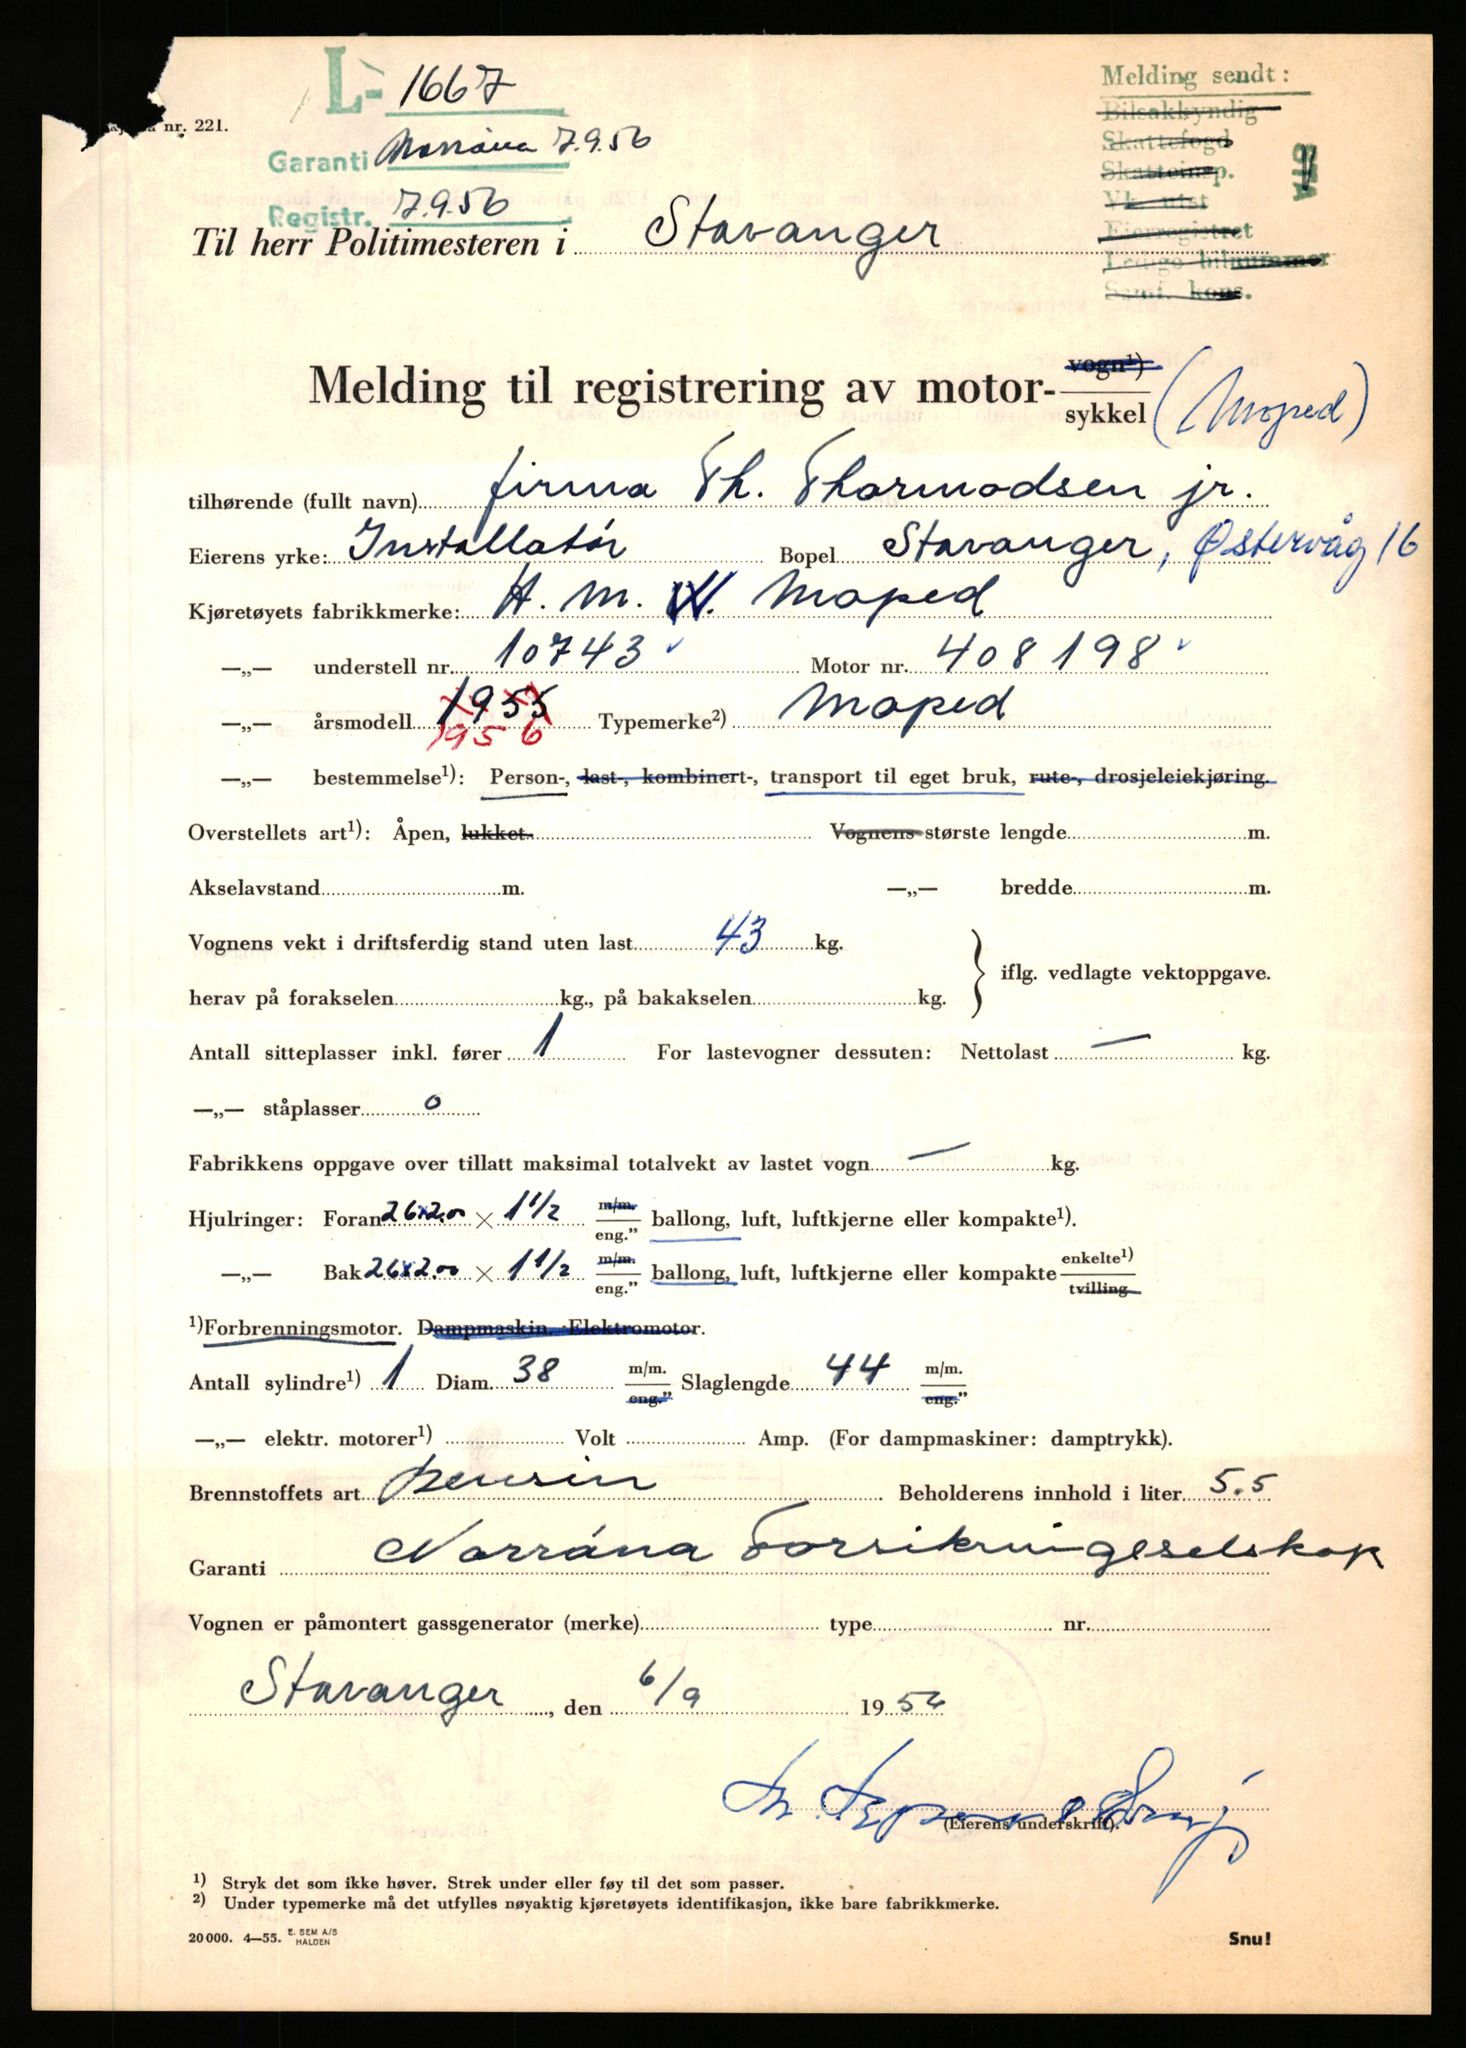 L- 1667
nr. 221.
Garanti Norrøna 7.9.56
Registr. 7.9.56
Melding sendt:
Bilsakkyndig
Skattefogd
Skatteinsp.
Vk. utst
Eierregistret
Ledige bilnummer
Saml. kons.
Til herr Politimesteren i Stavanger
Melding til registrering av motor- vogn¹) sykkel (Moped)
tilhørende (fullt navn) firma Th. Thormodsen jr.
Eierens yrke: Installatør Bopel Stavanger, Østervåg 16
Kjøretøyets fabrikkmerke: H. M. W. Moped
—„— understell nr. 10743 Motor nr. 408198
—„— årsmodell 1955 Typemerke²) Moped
1956
—„— bestemmelse¹): Person-, last-, kombinert-, transport til eget bruk, rute-, drosjeleiekjøring.
Overstellets art¹): Åpen, lukket Vognens største lengde m.
Akselavstand m. —„— bredde m.
Vognens vekt i driftsferdig stand uten last 43 kg.
iflg. vedlagte vektoppgave.
herav på forakselen kg., på bakakselen kg.
Antall sitteplasser inkl. fører 1 For lastevogner dessuten: Nettolast — kg.
—„— ståplasser 0
Fabrikkens oppgave over tillatt maksimal totalvekt av lastet vogn — kg.
Hjulringer: Foran 26x2.00 × 1 1/2 m/m. eng.” ballong, luft, luftkjerne eller kompakte¹).
—„— Bak 26x2.00 × 1 1/2 m/m. eng.” ballong, luft, luftkjerne eller kompakte enkelte¹) tvilling
¹)Forbrenningsmotor. Dampmaskin. Elektromotor.
Antall sylindre¹) 1 Diam. 38 m/m. eng.” Slaglengde 44 m/m. eng.”
—„— elektr. motorer¹) Volt Amp. (For dampmaskiner: damptrykk).
Brennstoffets art Bensin Beholderens innhold i liter 5.5
Garanti Norrøna Forsikringselskap
Vognen er påmontert gassgenerator (merke) type nr.
Stavanger, den 6/9 1956
(Eierens underskrift).
¹) Stryk det som ikke høver. Strek under eller føy til det som passer.
²) Under typemerke må det utfylles nøyaktig kjøretøyets identifikasjon, ikke bare fabrikkmerke.
20 000. 4—55. E. SEM A/S HALDEN
Snu!